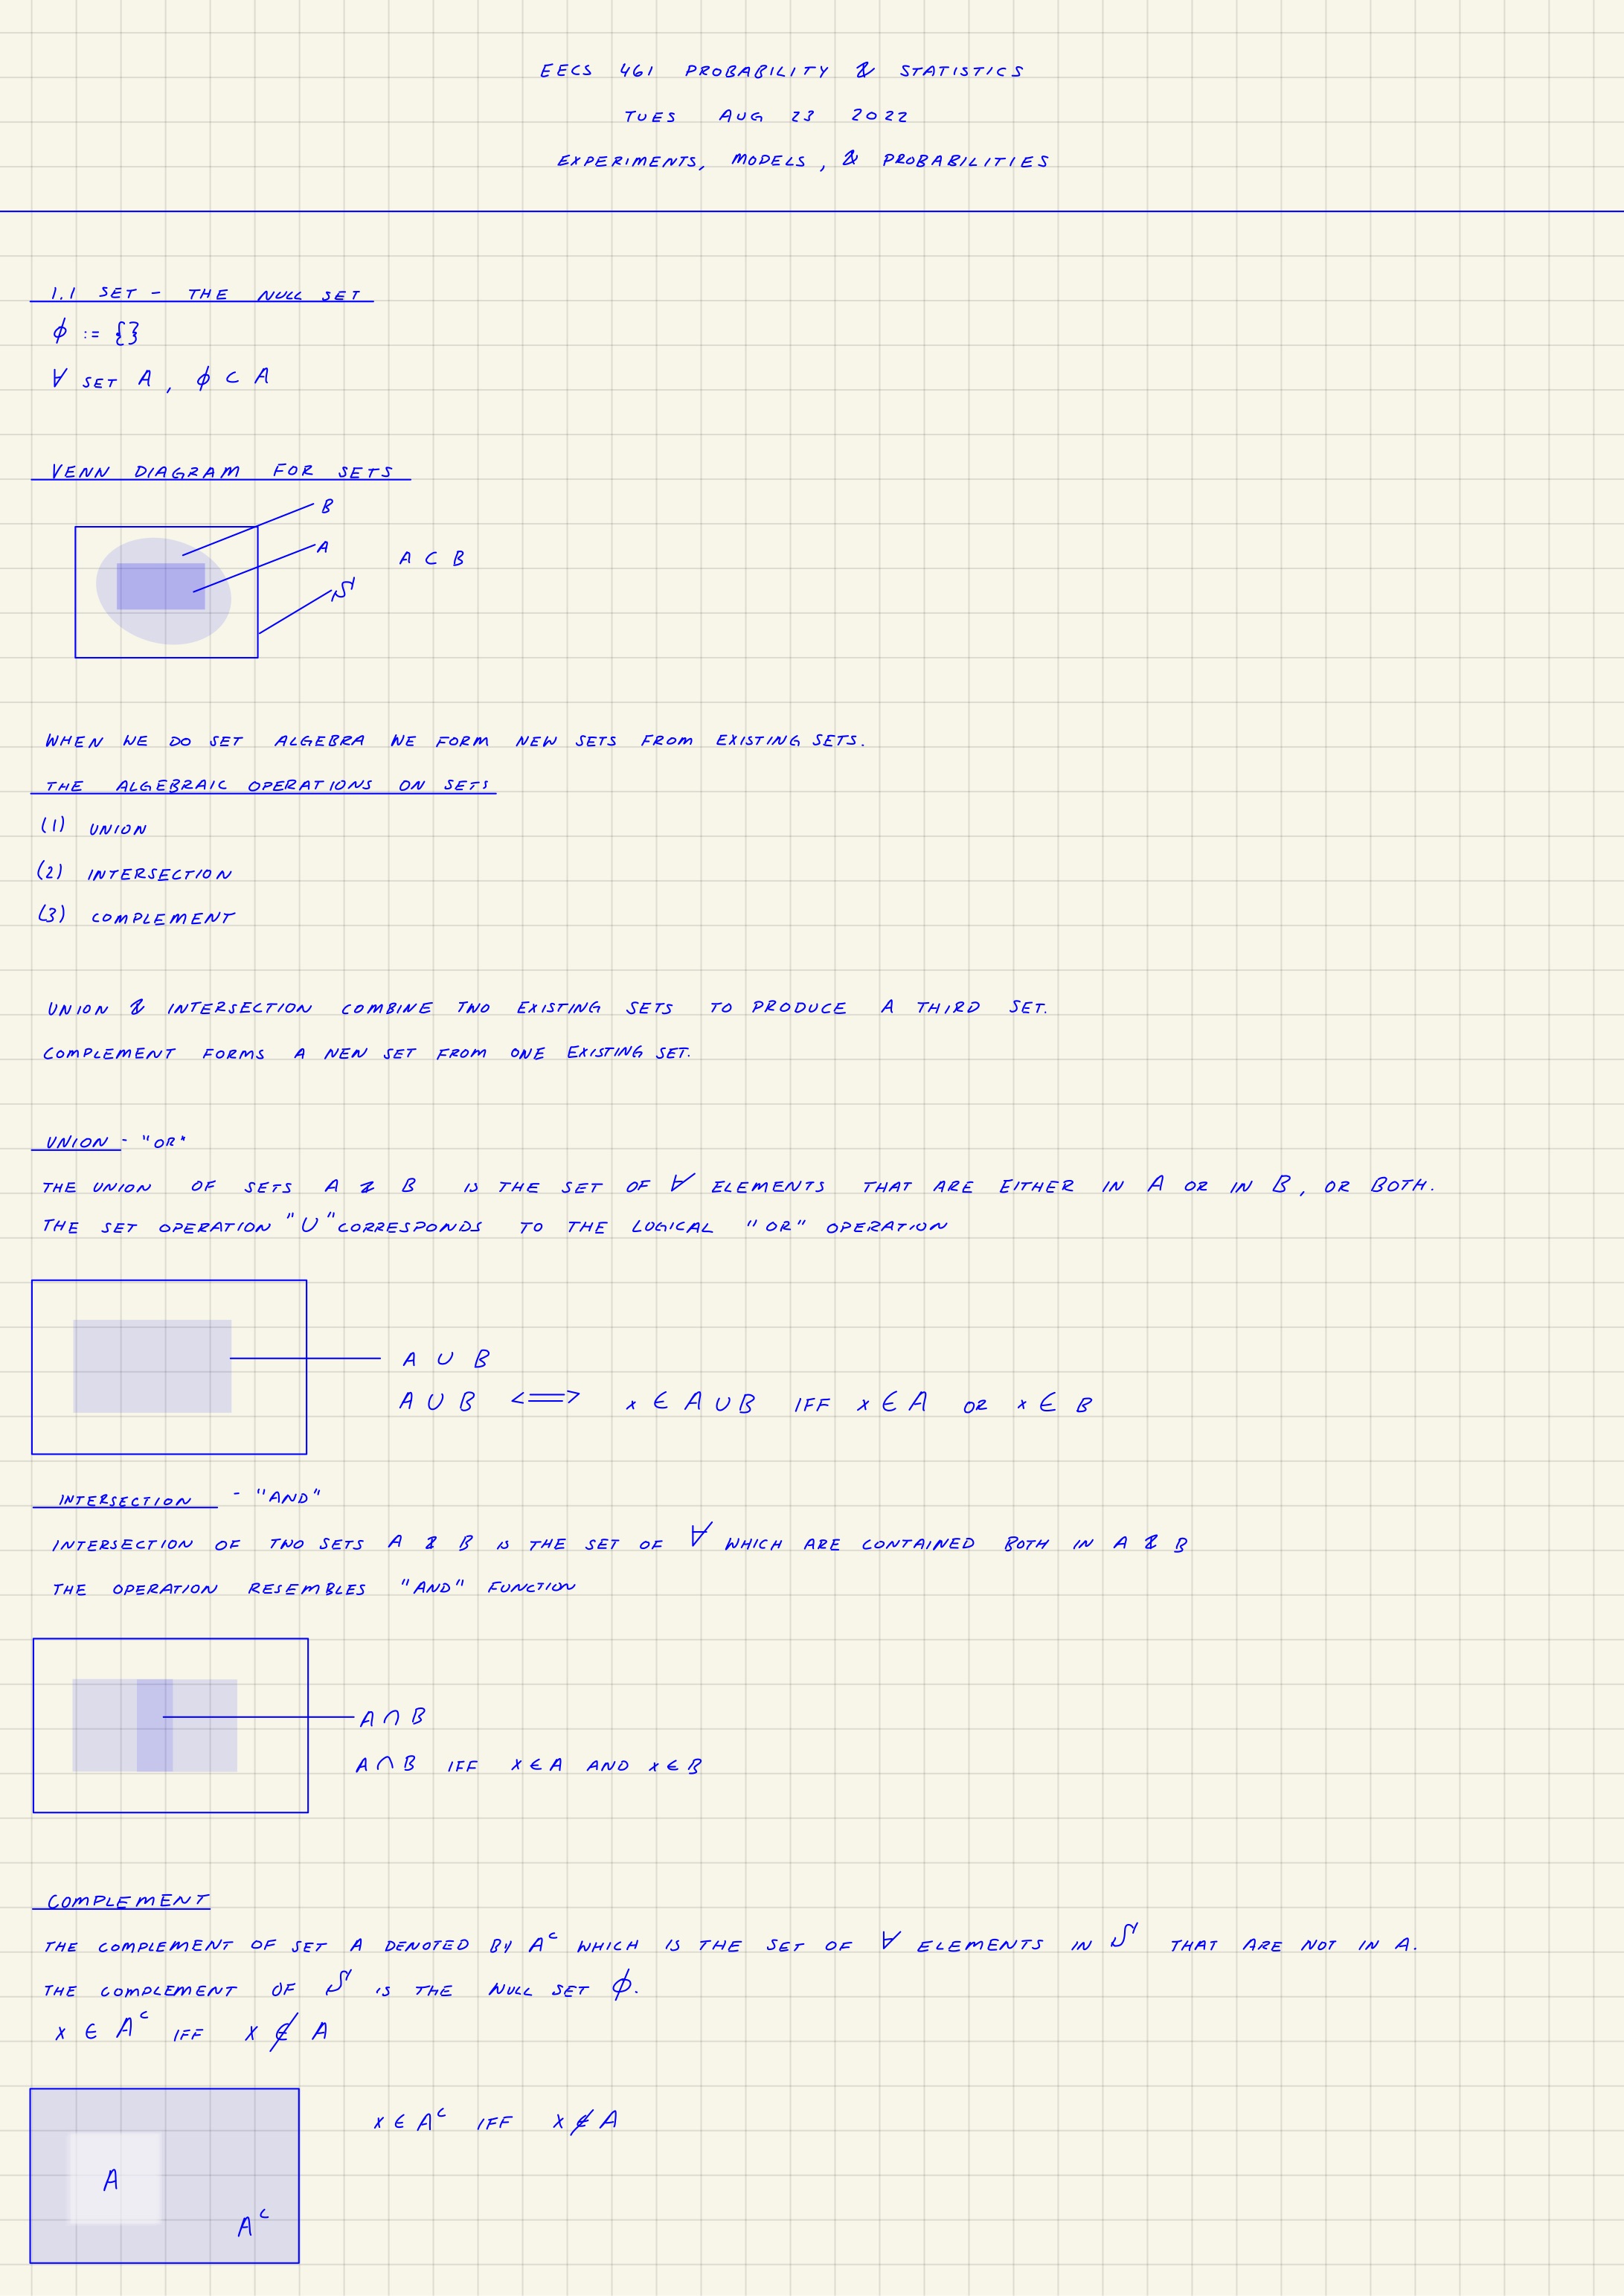 EECS 461 PROBABILITY & STATISTICS
TUES AUG 23 2022
EXPERIMENTS, MODELS, & PROBABILITIES
1.1 SET - THE NULL SET
ϕ := {}
∀ SET A, ϕ ⊂ A
VENN DIAGRAM FOR SETS
B
A
A ⊂ B
S
WHEN WE DO SET ALGEBRA WE FORM NEW SETS FROM EXISTING SETS.
THE ALGEBRAIC OPERATIONS ON SETS
(1) UNION
(2) INTERSECTION
(3) COMPLEMENT
UNION & INTERSECTION COMBINE TWO EXISTING SETS TO PRODUCE A THIRD SET.
COMPLEMENT FORMS A NEW SET FROM ONE EXISTING SET.
UNION - "OR"
THE UNION OF SETS A & B IS THE SET OF ∀ ELEMENTS THAT ARE EITHER IN A OR IN B, OR BOTH.
THE SET OPERATION "U" CORRESPONDS TO THE LOGICAL "OR" OPERATION
A ∪ B
A ∪ B <=> x ∈ A ∪ B IFF x ∈ A OR x ∈ B
INTERSECTION - "AND"
INTERSECTION OF TWO SETS A & B IS THE SET OF ∀ WHICH ARE CONTAINED BOTH IN A & B
THE OPERATION RESEMBLES "AND" FUNCTION
A ∩ B
A ∩ B IFF x ∈ A AND x ∈ B
COMPLEMENT
THE COMPLEMENT OF SET A DENOTED BY Aᶜ WHICH IS THE SET OF ∀ ELEMENTS IN S THAT ARE NOT IN A.
THE COMPLEMENT OF S IS THE NULL SET ϕ.
x ∈ Aᶜ IFF x ∉ A
x ∈ Aᶜ IFF x ∉ A
A
Aᶜ